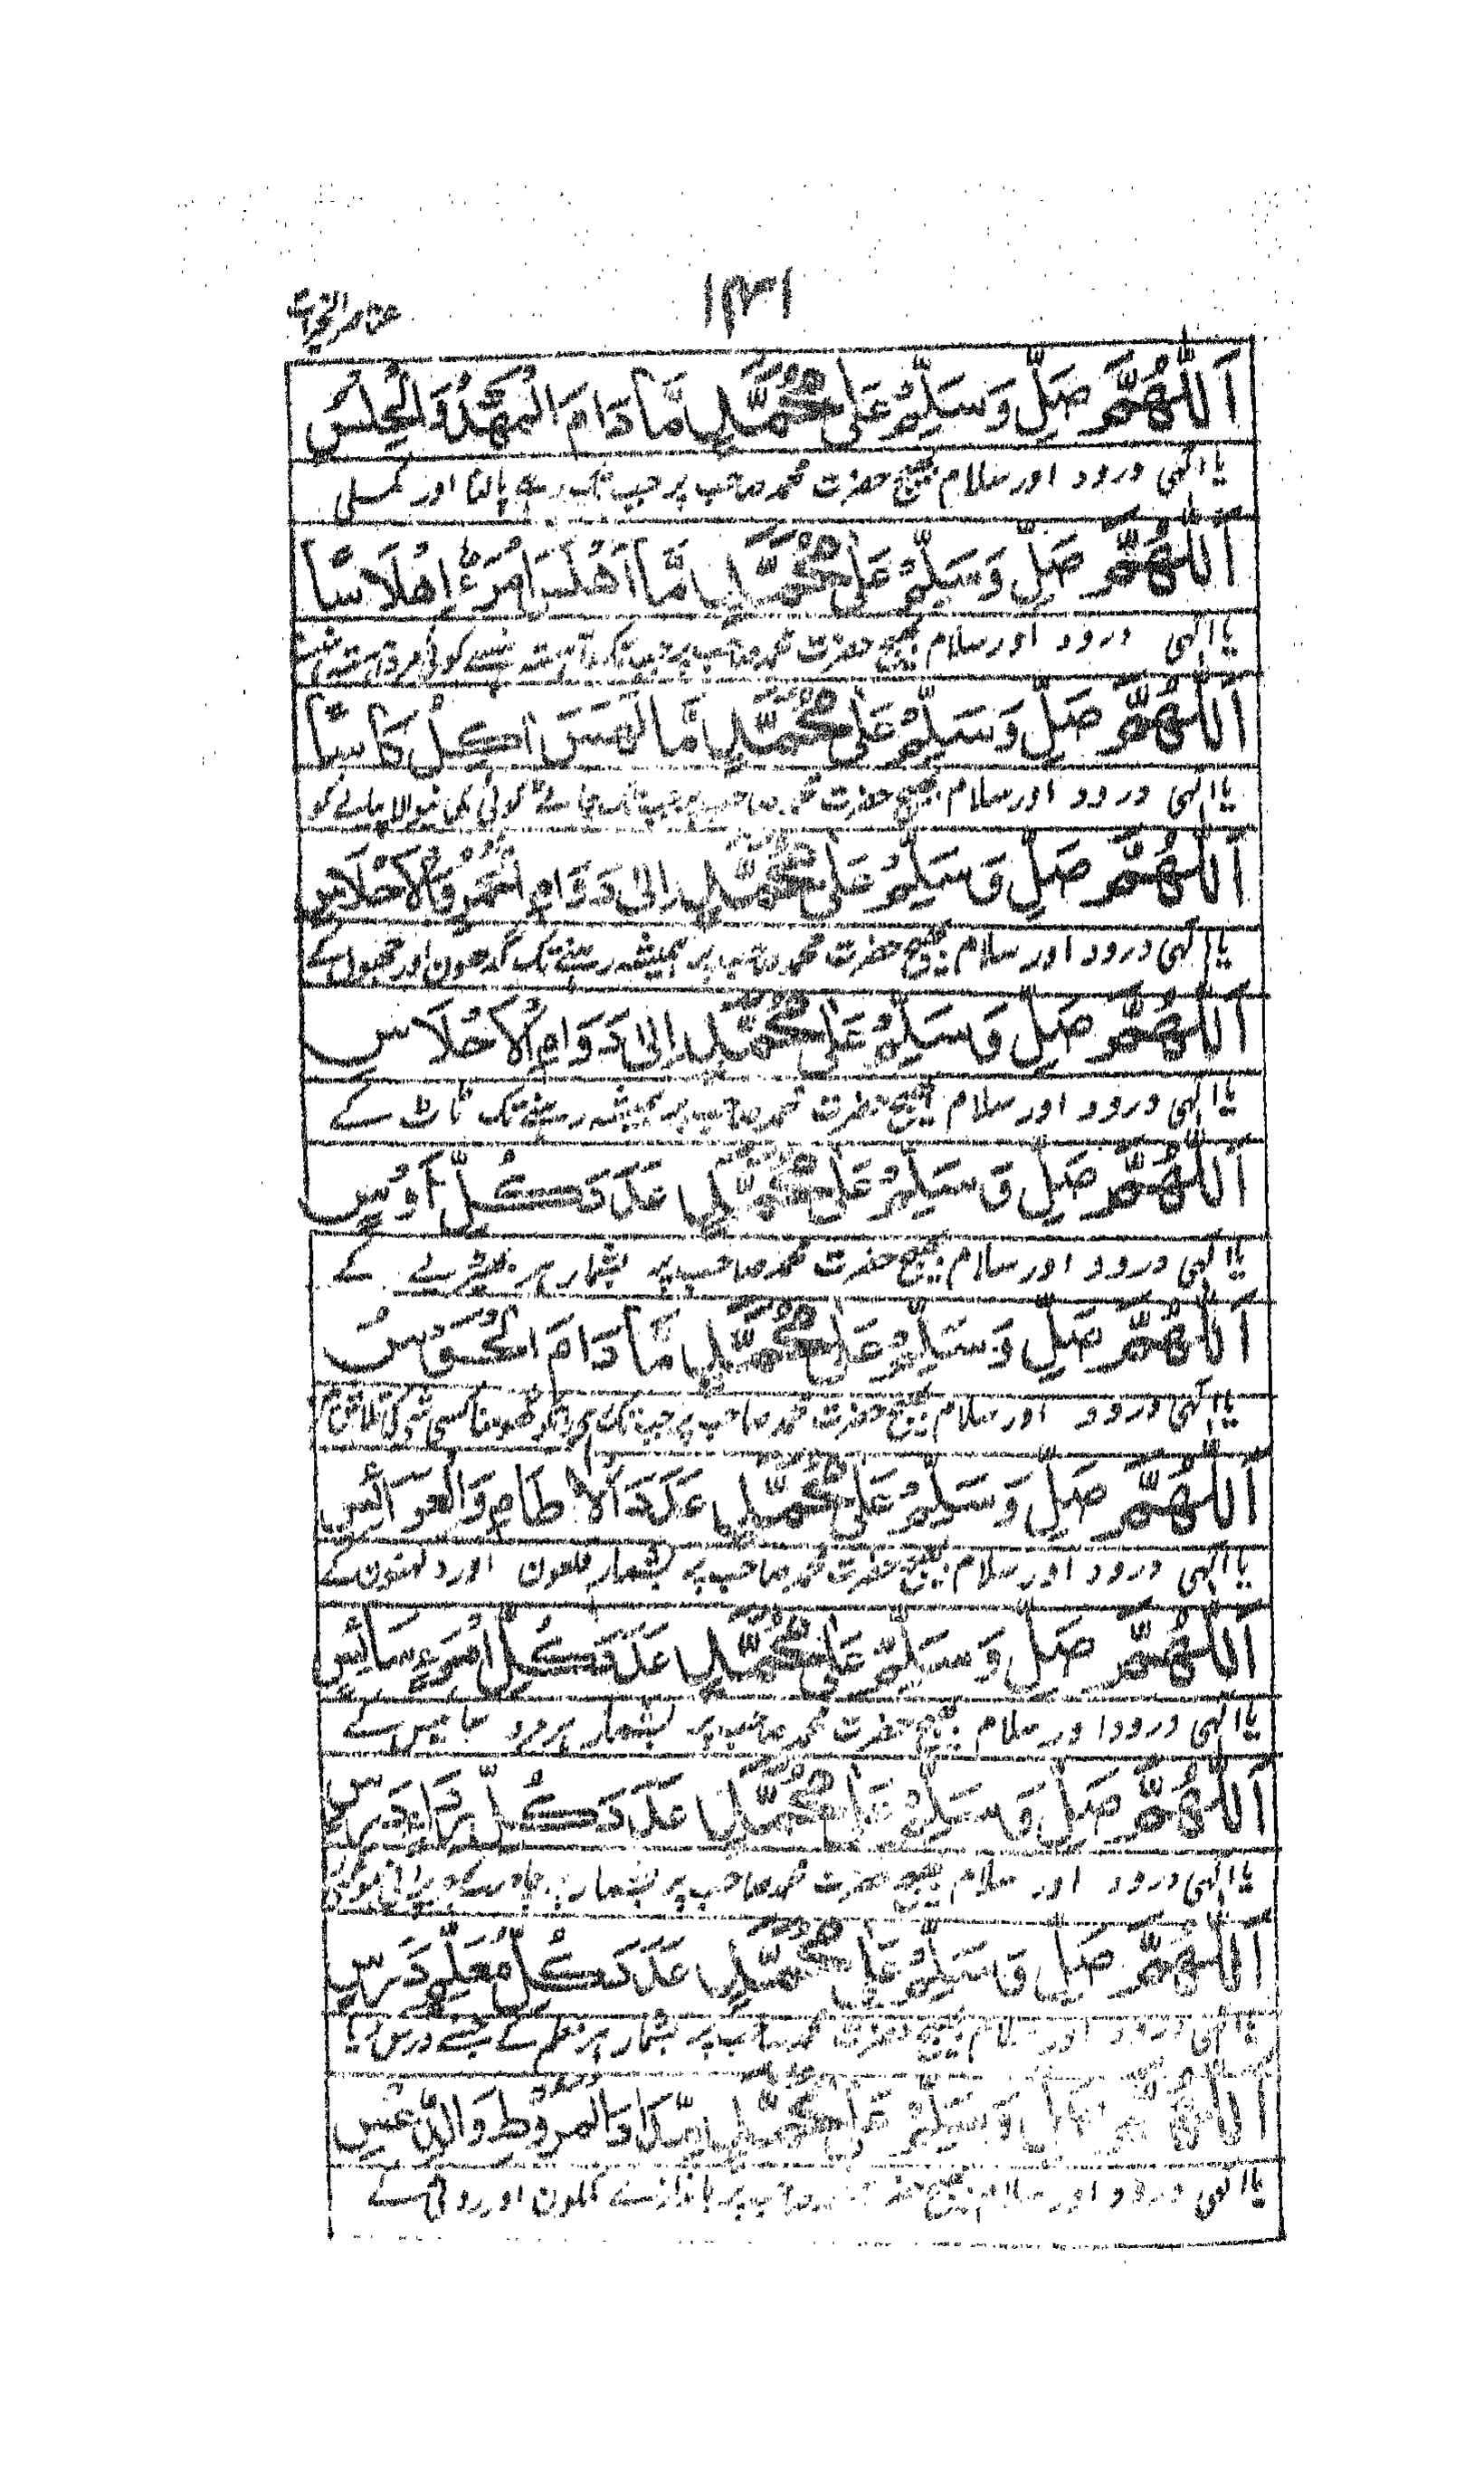 ۱۳۱
اَللّٰهُمَّ صَلِّ وَسَلِّمْ عَلٰى مُحَمَّدٍ مَّا دَامَ الْمَهْدُ وَالْحِلْسُ
یا الٰہی درود اور سلام بھیج حضرت محمد صاحب پر جب تک رہے پالنا اور کملی
اَللّٰهُمَّ صَلِّ وَسَلِّمْ عَلٰى مُحَمَّدٍ مَّا اَهْلَسَ امْرَءٌ اِهْلَاسًا
یا الٰہی درود اور سلام بھیج حضرت محمد صاحب پر جب تک ہنسے کوئی مرد
اَللّٰهُمَّ صَلِّ وَسَلِّمْ عَلٰى مُحَمَّدٍ مَّا لَهَسَ اٰكِلٌ كَاسًا
یا الٰہی درود اور سلام بھیج حضرت محمد صاحب پر جب تک چاٹے کوئی پیالے کو
اَللّٰهُمَّ صَلِّ وَسَلِّمْ عَلٰى مُحَمَّدٍ اِلٰى دَوَامِ الْحُمُرِ وَالْاَحْلَاسِ
یا الٰہی درود اور سلام بھیج حضرت محمد صاحب پر ہمیشہ رہنے تک گدھون اور جھولے
اَللّٰهُمَّ صَلِّ وَسَلِّمْ عَلٰى مُحَمَّدٍ اِلٰى دَوَامِ الْاَحْلَاسِ
یا الٰہی درود اور سلام بھیج حضرت محمد صاحب پر ہمیشہ رہنے تک ٹاٹ کے
اَللّٰهُمَّ صَلِّ وَسَلِّمْ عَلٰى مُحَمَّدٍ عَدَدَ كُلِّ اَوْسٍ
یا الٰہی درود اور سلام بھیج حضرت محمد صاحب پر بشمار ہر بھیڑیے کے
اَللّٰهُمَّ صَلِّ وَسَلِّمْ عَلٰى مُحَمَّدٍ مَّا دَامَ الْحَوْسُ
یا الٰہی درود اور سلام بھیج حضرت محمد صاحب پر جب تک کسی
اَللّٰهُمَّ صَلِّ وَسَلِّمْ عَلٰى مُحَمَّدٍ عَدَدَ الْاٰطَامِ وَالْعَرَائِسِ
یا الٰہی درود اور سلام بھیج حضرت محمد صاحب پر بشمار قلعون اور دلھنون کے
اَللّٰهُمَّ صَلِّ وَسَلِّمْ عَلٰى مُحَمَّدٍ عَدَدَ كُلِّ امْرَءٍ سَائِسٍ
یا الٰہی درود اور سلام بھیج حضرت محمد صاحب پر بشمار ہر مرد سائیس کے
اَللّٰهُمَّ صَلِّ وَسَلِّمْ عَلٰى مُحَمَّدٍ عَدَدَ كُلِّ رِدَاءٍ دَرِيسٍ
یا الٰہی درود اور سلام بھیج حضرت محمد صاحب پر بشمار ہر چادر کے جو پرانی ہو گئی
اَللّٰهُمَّ صَلِّ وَسَلِّمْ عَلٰى مُحَمَّدٍ عَدَدَ كُلِّ مُعَلِّمٍ دَرَّسَ
یا الٰہی درود اور سلام بھیج حضرت محمد صاحب پر بشمار ہر معلم کے جسنے درس دیا
اَللّٰهُمَّ صَلِّ وَسَلِّمْ عَلٰى مُحَمَّدٍ مِّدَادَ الْمُرُوْطِ
یا الٰہی درود اور سلام بھیج حضرت محمد صاحب پر باندازے کملون اور روئی کے